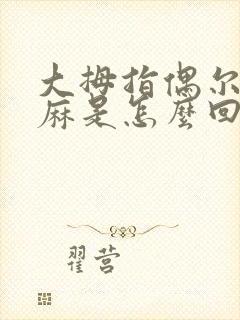 大拇指偶尔
麻是怎麽回
翟营